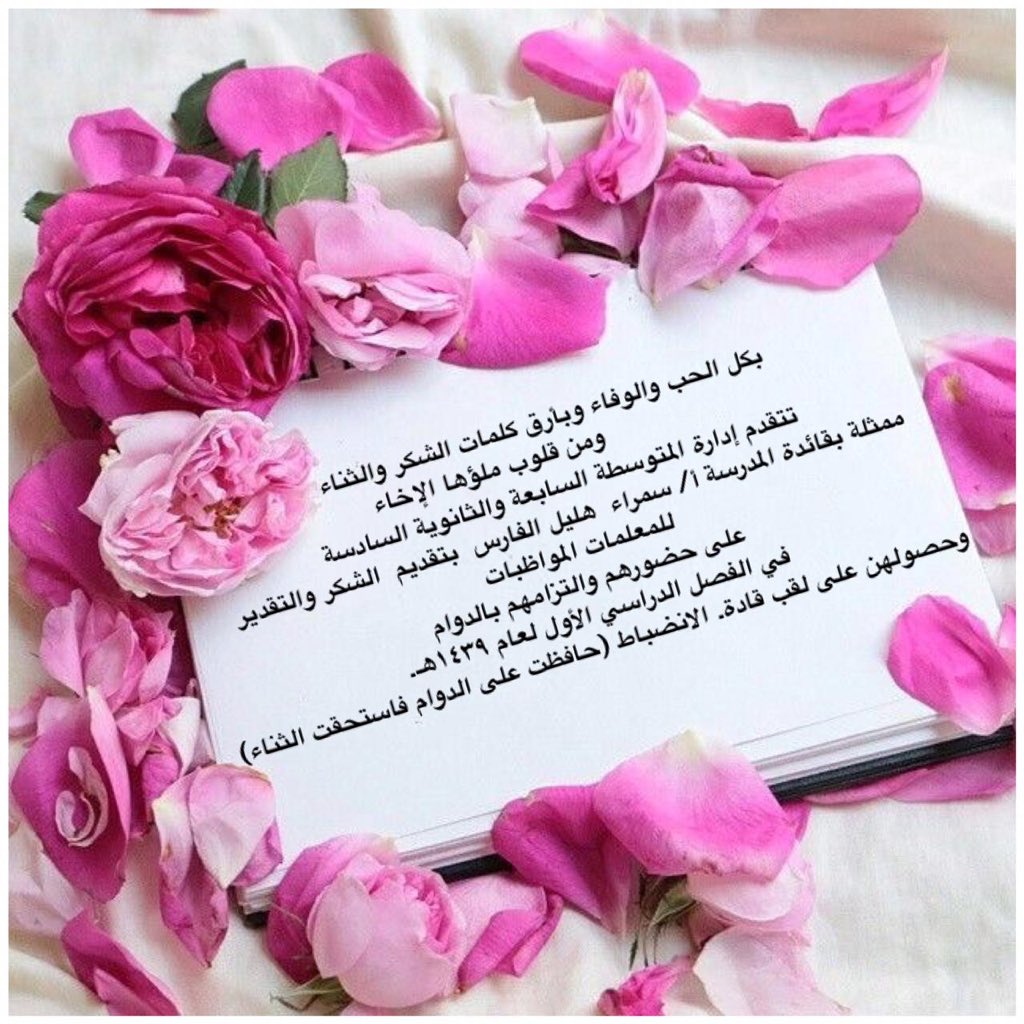 بكل الحب والوفاء وبأرق كلمات الشكر والثناء
ومن قلوب ملؤها الإخاء
تتقدم إدارة المتوسطة السابعة والثانوية السادسة
ممثلة بقائدة المدرسة أ/ سمراء هليل الفارس بتقديم الشكر والتقدير
للمعلمات المواظبات
على حضورهم والتزامهم بالدوام
في الفصل الدراسي الأول لعام ١٤٣٩هـ.
وحصولهن على لقب قادة. الانضباط (حافظت على الدوام فاستحقت الثناء)